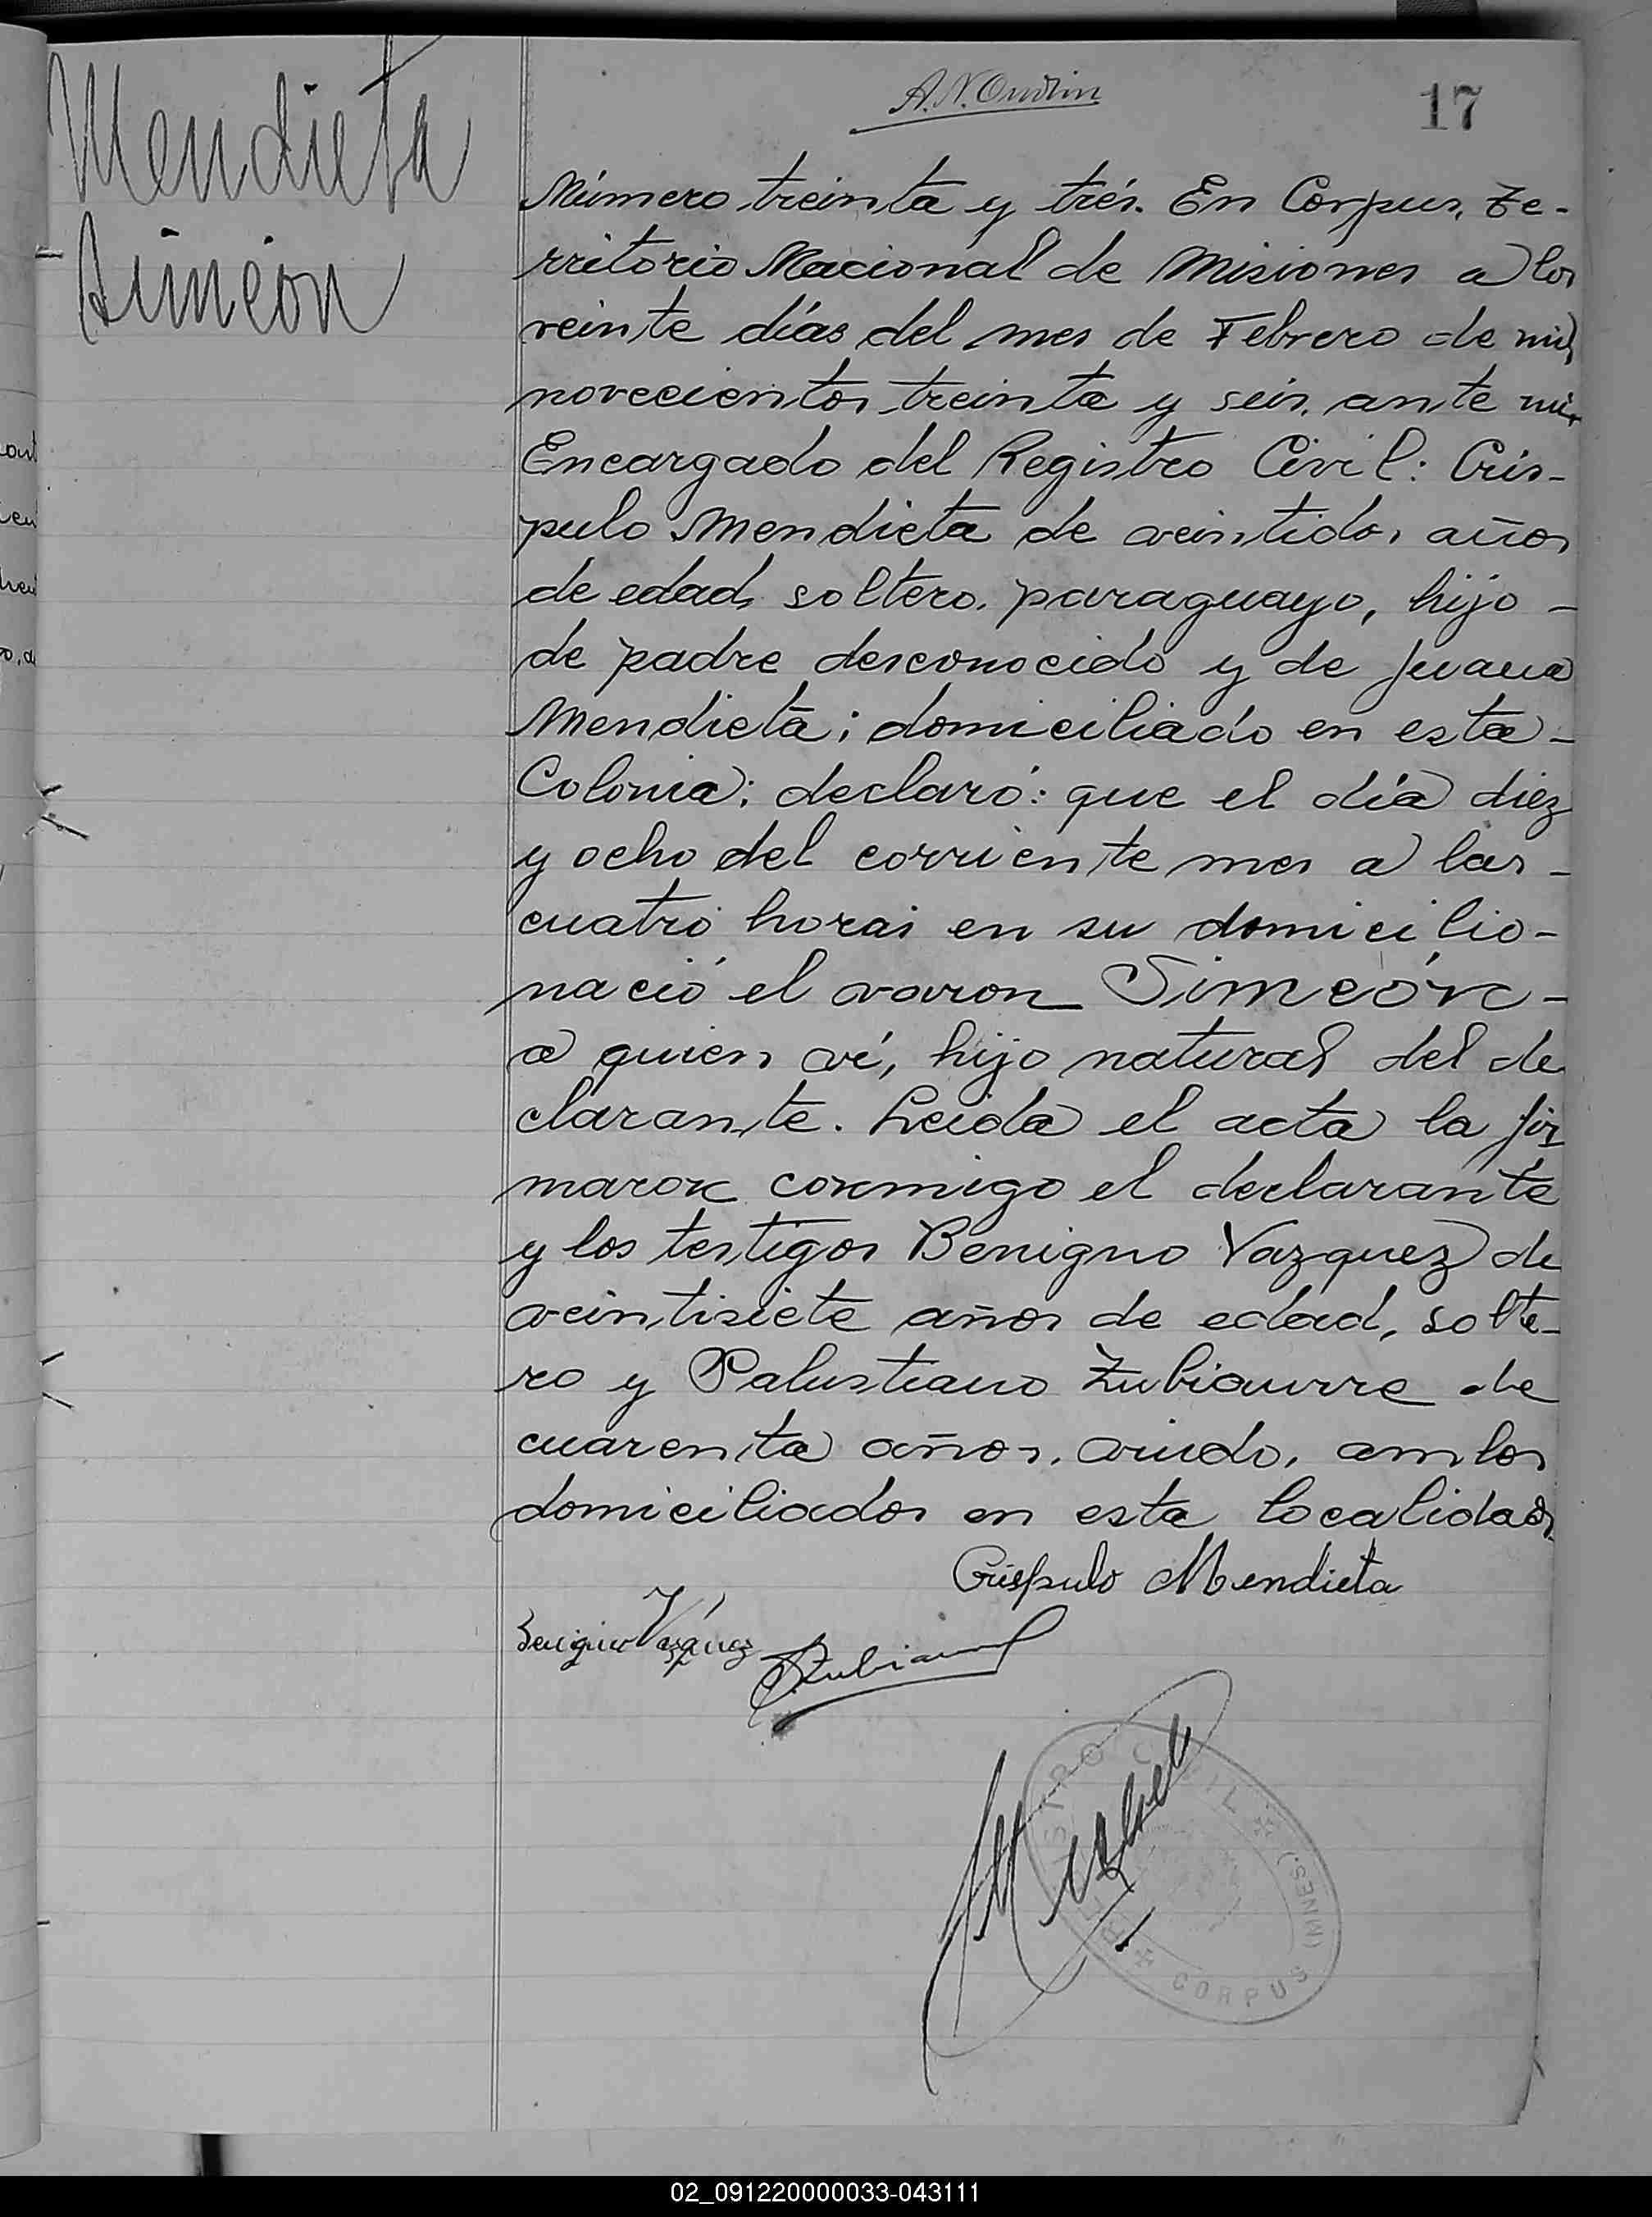 Mendieta
Simeón
17
Número treinta y trés. En Corpus, Te-
rritorio Nacional de Misiones a los
veinte días del mes de Febrero de mil
novecientos treinta y seis, ante mi,
Encargado del Registro Civil: Cris-
pulo Mendieta de veintidos años
de edad, soltero, paraguayo, hijo -
de padre desconocido y de Juana
Mendieta; domiciliado en esta -
Colonia; declaró: que el día diez
y ocho del corriente mes a las -
cuatro horas en su domicilio -
nació el varon Simeón -
a quien ví, hijo natural del de
clarante. Leida el acta la fir
maron conmigo el declarante
y los testigos Benigno Vazquez de
veintisiete años de edad, solte-
ro y Palustiano Zubiaurre de
cuarenta años, viudo, ambos
domiciliados en esta localidad.
Crispulo Mendieta
Benigno Vazquez
P. Zubiaurre
REGISTRO CIVIL
(MNES.)
CORPUS
02_091220000033-043111